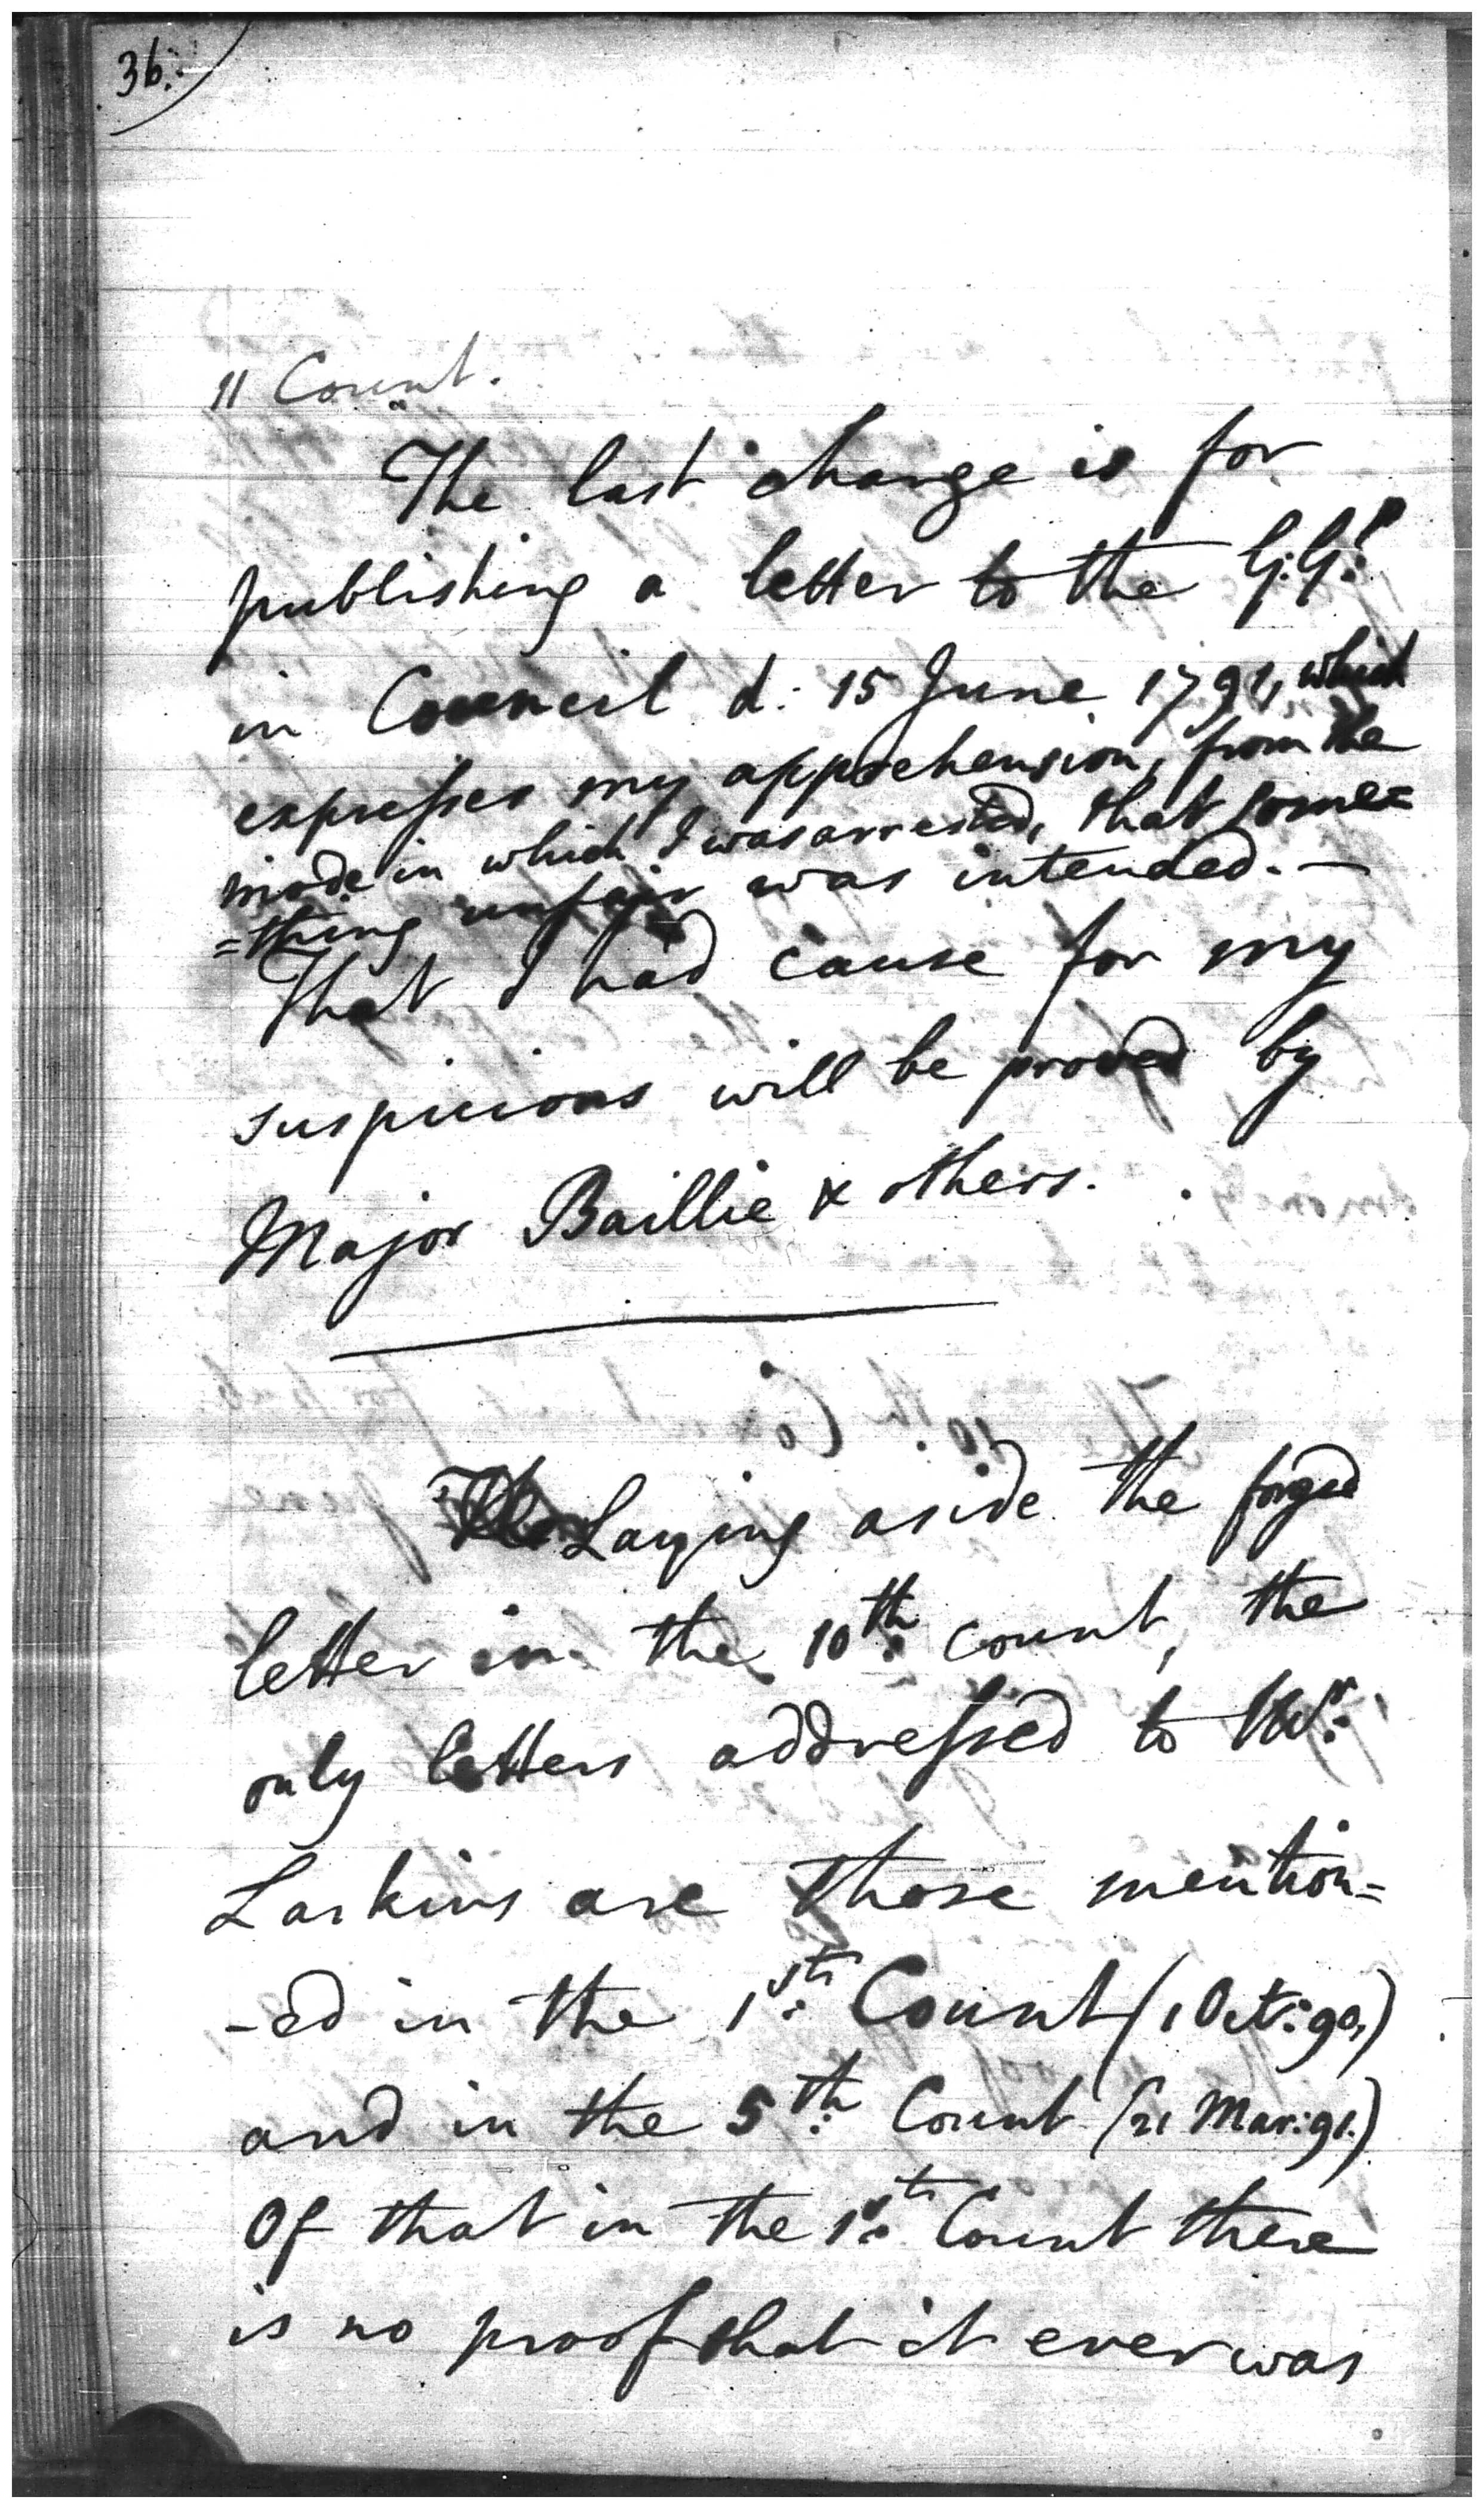 36.
11 Count.
The last charge is for
publishing a letter to the G: G:l
in Council d: 15 June 1791, which
expresses my apprehension, from the
mode in which I was arrested, that some=
=thing unfair was intended. —
That I had cause for my
suspicions will be proved by
Major Baillie & others.
Laying aside the forged
letter in the 10th: count, the
only letters addressed to Mr:
Larkins are those mention=
-ed in the 1st: Count (1 Oct: 90,)
and in the 5th: Count (21 Mar: 91.)
Of that in the 1st: Count there
is no proof that it ever was